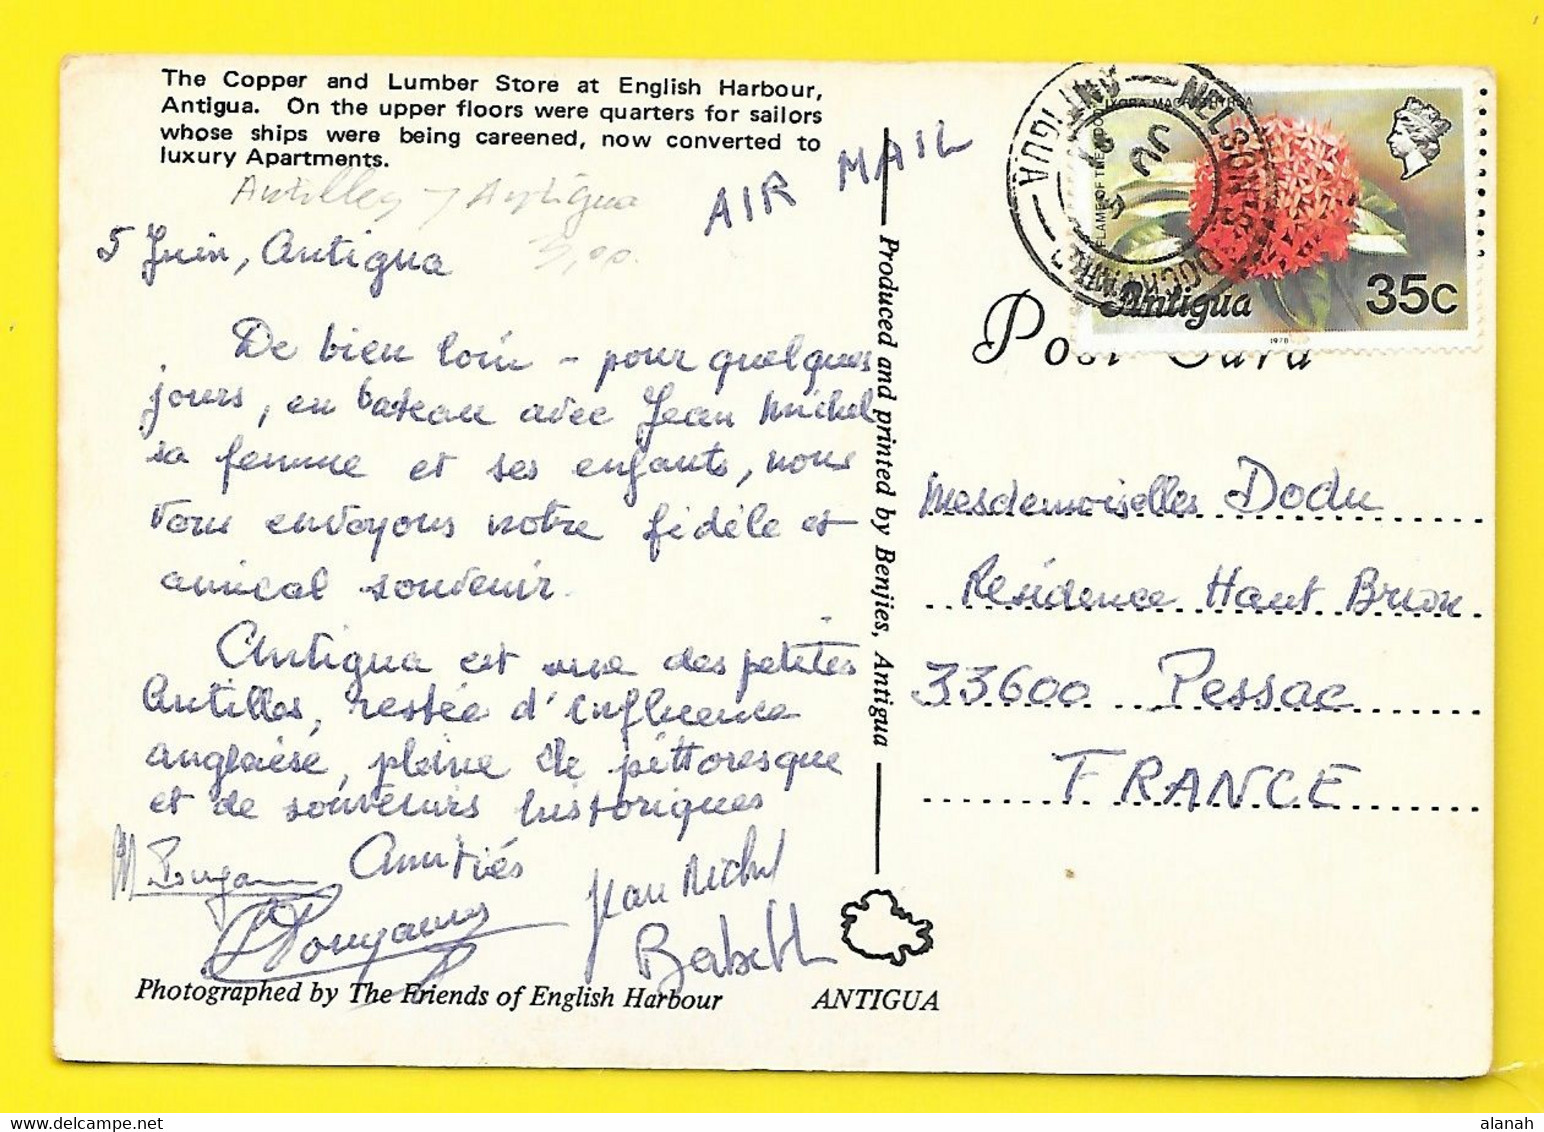 The Copper and Lumber Store at English Harbour,
Antigua. On the upper floors were quarters for sailors
whose ships were being careened, now converted to
luxury Apartments.
Antilles Antigua
3,00.
AIR MAIL
5 Juin, Antigua
De bien loin - pour quelques
jours, en bateau avec Jean Michel
sa femme et ses enfants, nous
vous envoyons notre fidèle et
amical souvenir.
Antigua est une des petites
Antilles, restée d'influence
anglaise, pleine de pittoresque
et de souvenirs historiques
Amitiés
Jean Michel
Babeth
Photographed by The Friends of English Harbour
ANTIGUA
Produced and printed by Benjies, Antigua
Post Card
NELSON'S DOCKYARD
ANTIGUA
JU
IXORA MACROTHYRSA
FLAME OF THE WOODS
Antigua
35c
1978
Mesdemoiselles Dodu
Résidence Haut Brion
33600 Pessac
FRANCE
alanah